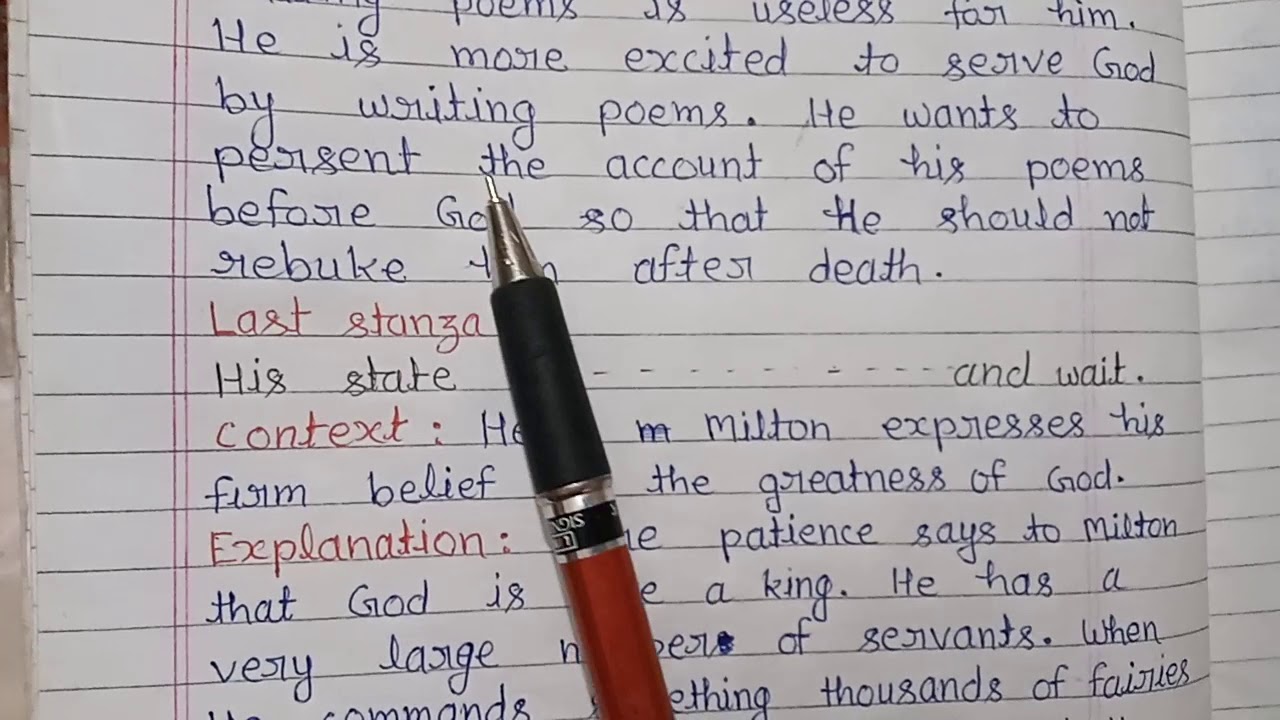 poems is useless for him.
He is more excited to serve God
by writing poems. He wants to
persent the account of his poems
before God so that He should not
rebuke after death.
Last stanza
His state - - - - - - - - and wait.
Context: Milton expresses his
firm belief the greatness of God.
Explanation: patience says to Milton
that God is a king. He has a
very large of servants. When
He commands thousands of fairies